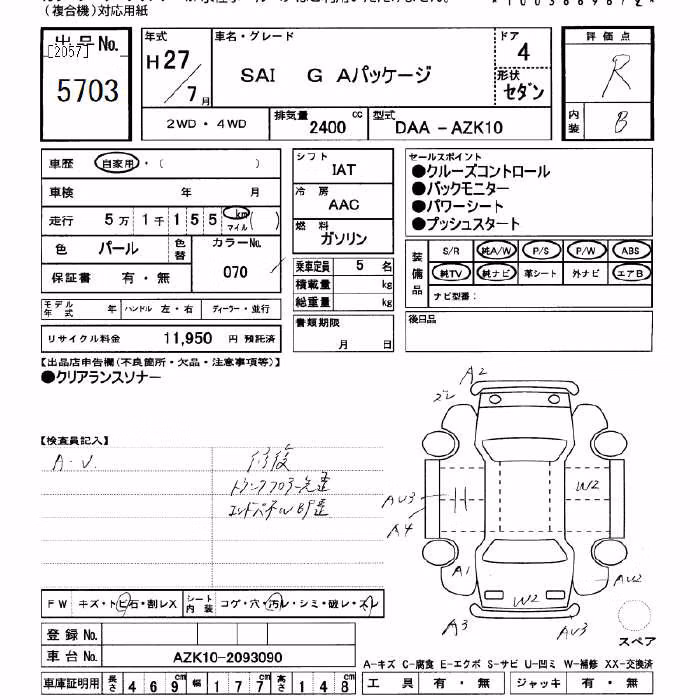 （複合機）対応用紙
出品No.
[2057]
5703
年式
H27/7月
車名・グレード
SAI G Aパッケージ
ドア
4
形状
セダン
評価点
R
内装
B
2WD・4WD
排気量
2400 cc
型式
DAA -AZK10
車歴
自家用・( )
車検 年 月
走行 5万1千155 km マイル ( )
色 パール
色替
カラーNo.
070
保証書 有・無
モデル年式 年
ハンドル 左・右
ディーラー・並行
リサイクル料金 11,950 円 預託済
シフト
IAT
冷房
AAC
燃料
ガソリン
乗車定員 5 名
積載量 kg
総重量 kg
書類期限
月 日
セールスポイント
●クルーズコントロール
●バックモニター
●パワーシート
●プッシュスタート
装備品
S/R 純A/W P/S P/W ABS
純TV 純ナビ 革シート 外ナビ エアB
ナビ型番：
後日品
【出品店申告欄(不良箇所・欠品・注意事項等)】
●クリアランスソナー
【検査員記入】
A・U
修復
トランクフロアー先歪
エンドパネルBP歪
A2
AU3
A4
W2
A1
W2
AU2
A3
AU3
スペア
FW キズ・トビ石・割レX
シート内装 コゲ・穴・汚レ・シミ・破レ・スレ
登録No.
車台No. AZK10-2093090
車庫証明用 長さ 469cm 幅 177cm 高さ 148cm
A-キズ C-腐食 E-エクボ S-サビ U-凹ミ W-補修 XX-交換済
工具 有・無 ジャッキ 有・無